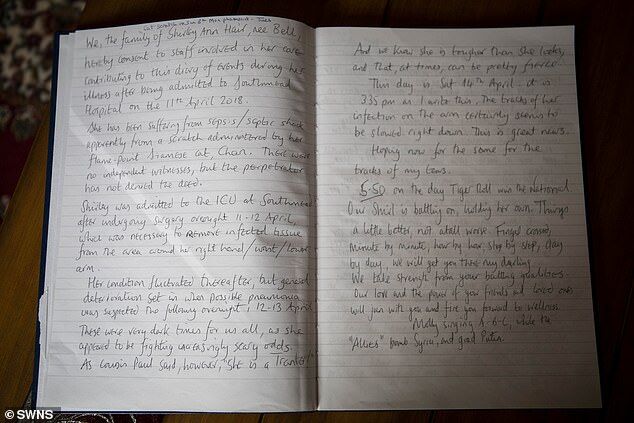 cat scratch on Sun 8th
We, the family of Shirley Ann Hair, nee Bell,
hereby consent to staff involved in her care
contributing to this diary of events during her
illness after being admitted to Southmead
Hospital on the 11th April 2018.
She has been suffering from sepsis/septic shock
apparently from a scratch administered by her
flame-point Siamese cat, Chan. There were
no independent witnesses, but the perpetrator
has not denied the deed.
Shirley was admitted to the ICU at Southmead
after undergoing surgery overnight 11-12 April,
which was necessary to remove infected tissue
from the area around her right hand/wrist/lower
arm.
Her condition fluctuated thereafter, but general
deterioration set in when possible pneumonia
was suspected the following overnight, 12-13 April
These were very dark times for us all, as she
appeared to be fighting increasingly scary odds.
As cousin Paul said, however, "She is a Tranter!"
And we know she is tougher than she looks,
and that, at times, can be pretty fierce.
This day is Sat 14th April. it is
335 pm as I write this. The tracks of her
infection on the arm certainly seems to
be slowed right down. This is great news.
Hoping now for the same for the
tracks of my tears.
5.50 on the day Tiger Roll won the National.
Our Shirl is battling on, holding her own. Things
a little better, not at all worse. Fingers crossed,
minute by minute, hour by hour, step by step, day
by day, we will get you there my darling.
We take strength from your battling qualities.
Our love and the power of your friends and loved ones
will join with you and fire you forward to wellness.
Molly singing A-B-C, while the
"Allies" bomb Syria, and goad Putin.
© SWNS